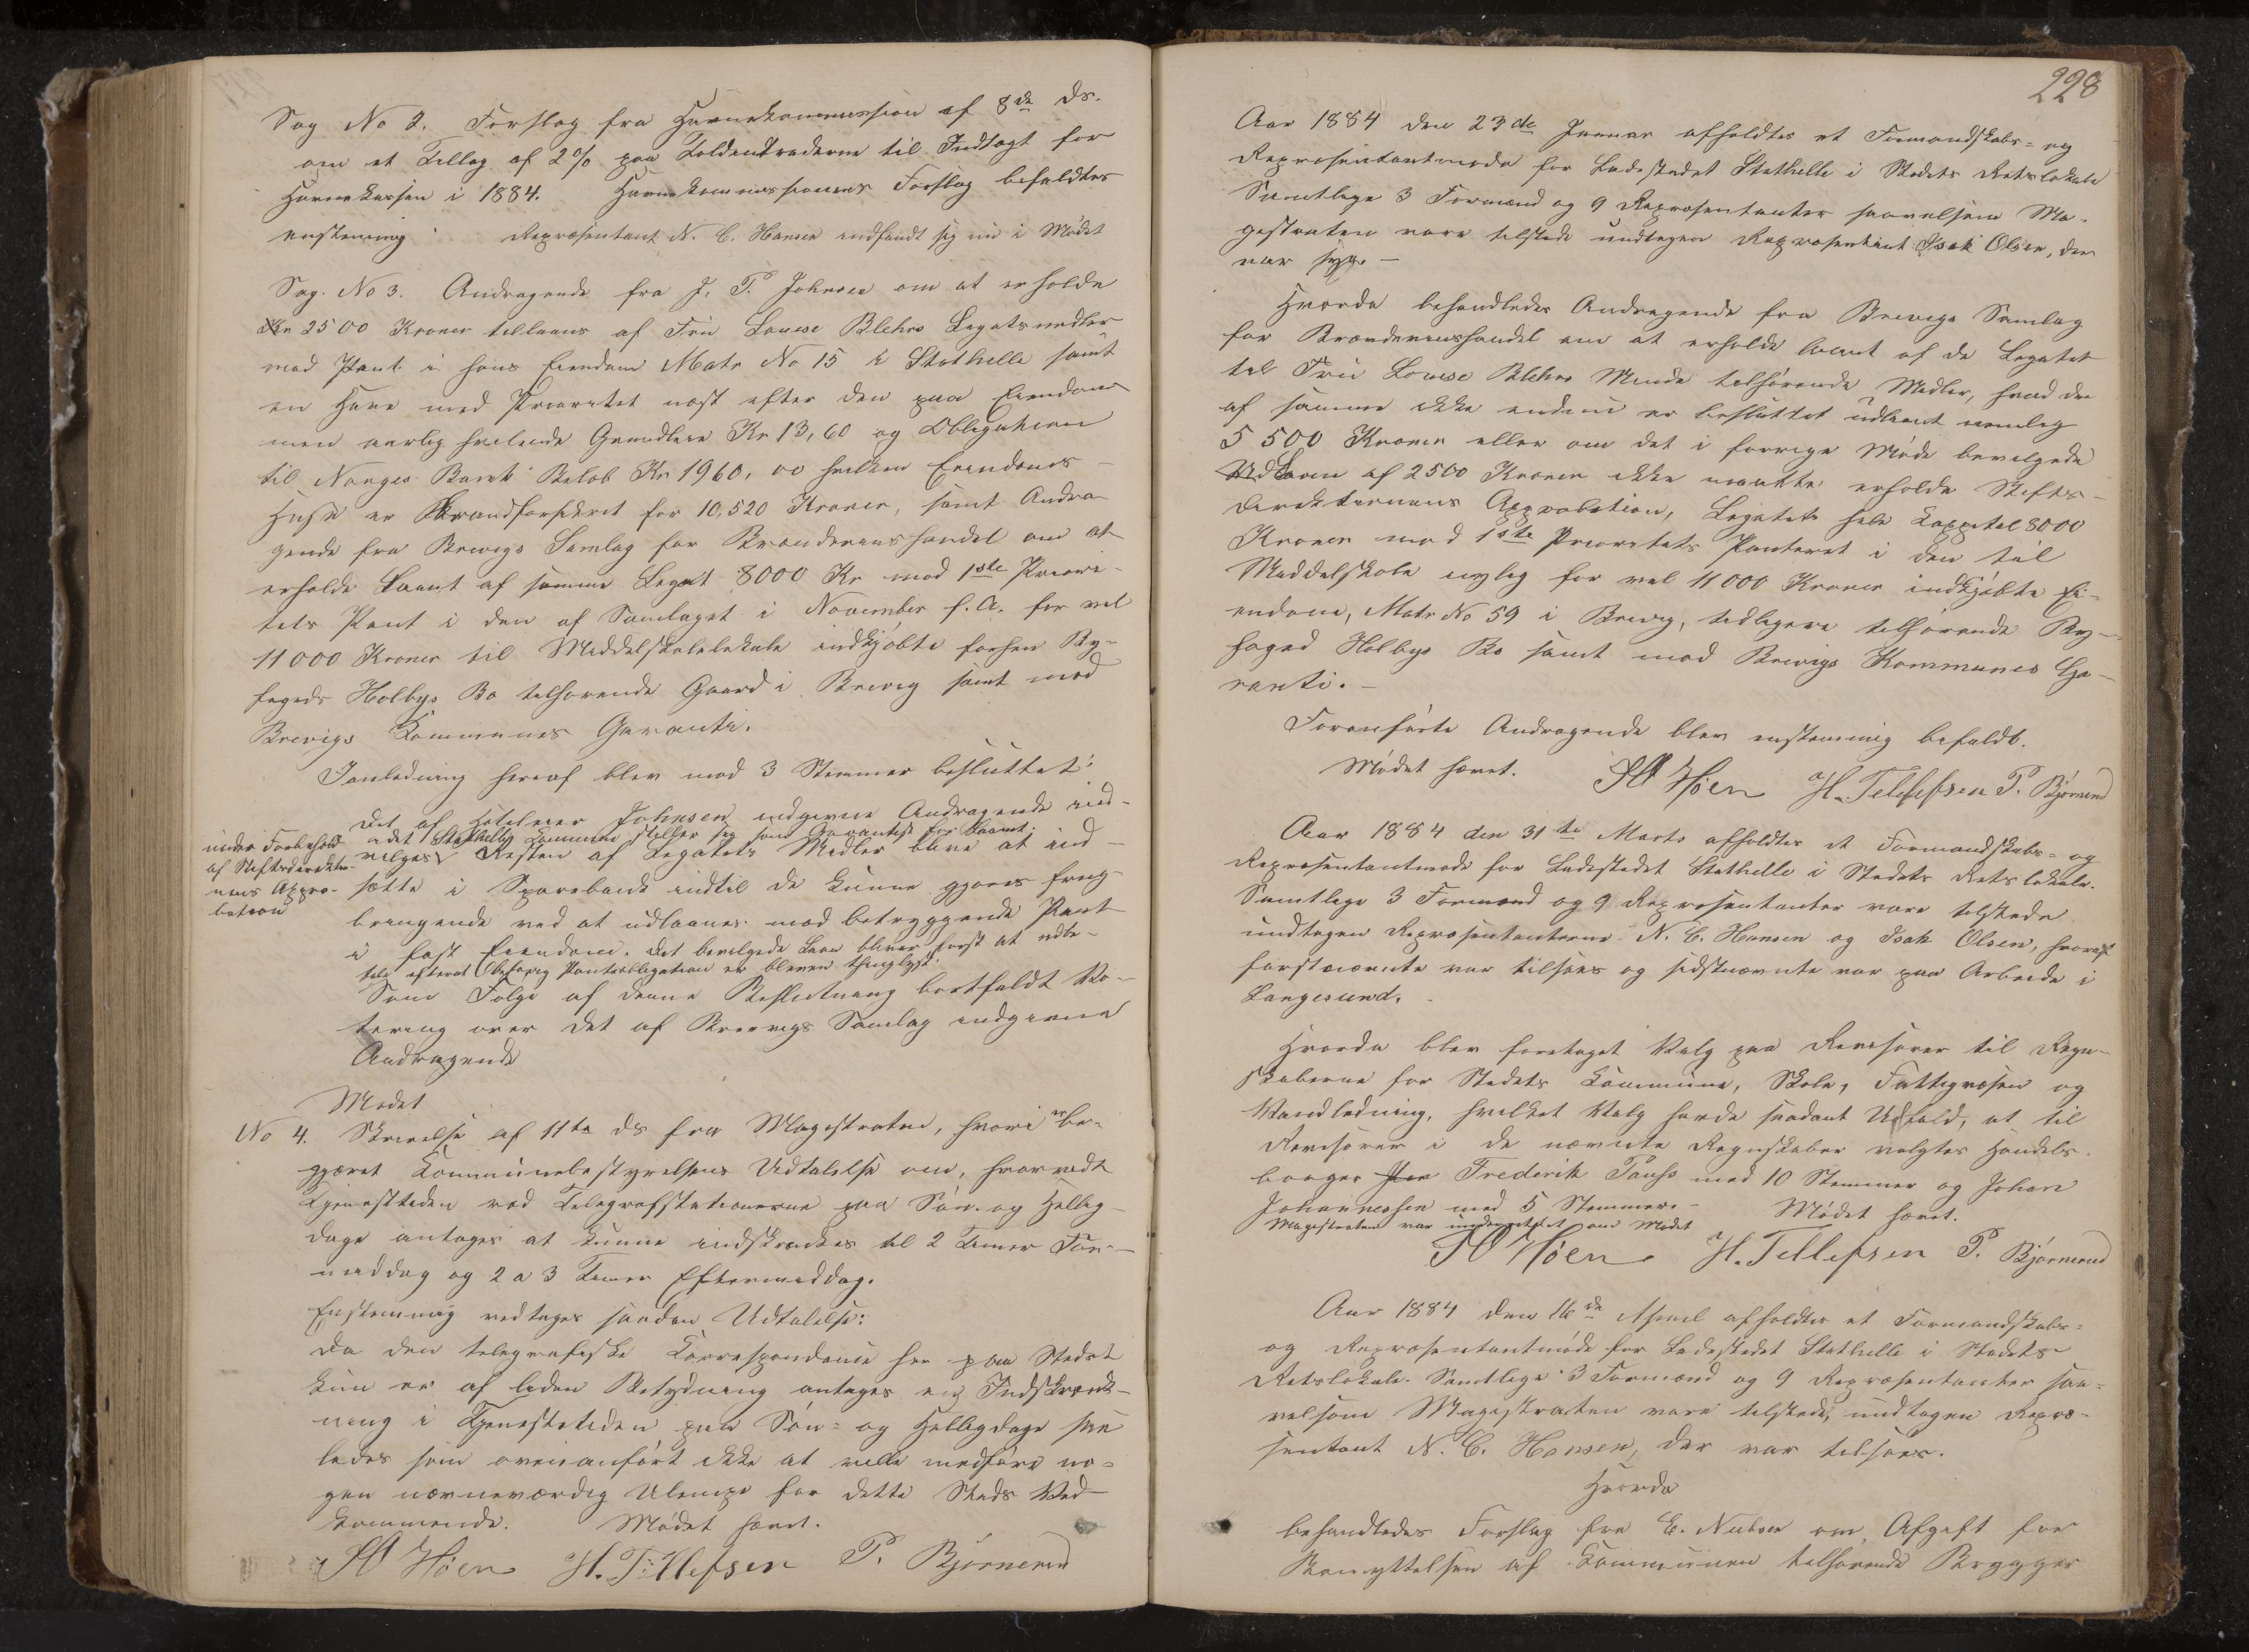 Sag No 2. Forslag fra Havnekommission af 8de ds.
om et Tillag af 2% paa Toldintraderne til Indtægt for
Havnekassen i 1884. Havnekommissionens Forslag bifaldtes
enstemmig. Repræsentant N. C. Hansen indfandt sig nu i Mødet
Sag. No 3. Andragende fra J. P. Johnsen om at erholde
2500 Kroner tillaans af Fru Louise Blehrs Legatsmidler
mod Pant i hans Eiendom Matr No 15 i Stathelle samt
en Have med Prioritet næst efter den paa Eiendom-
men aarlig hvilende Grundleie Kr 13,60 og Obligation
til Norges Bank Beløb Kr 1960,00 hvilken Eiendoms
Huse er Brandforsikret for 10,520 Kroner, samt Andra-
gende fra Brevigs Samlag for Brændevinshandel om at
erholde Laant af samme Legat 8000 Kr mod 1ste Priori-
tets Pant i den af Samlaget i November f. A. for vel
11000 Kroner til Middelskolelokale indkjøbte forhen By-
fogeds Holbys Bo tilhørende Gaard i Brevig samt mod
Brevigs Kommunes Garanti.
I Anledning heraf blev mod 3 Stemmer besluttet:
Det af Johnsen indgivne Andragende ind-
under Forbehold adet Stathelle Kommune stiller sig som Garantist for Laanet.
af Stiftsdirektio- vilges Resten af Legatets Midler blive at ind-
nens Appro- sætte i Sparebank indtil de kunne gjøres frugt-
bation
bringende ved at udlaanes mod betryggende Pant
i fast Eiendom. Det bevilgede Laan bliver først at udbe-
tale efterat behørig Pantobligation er bleven thinglyst.
Som Følge af denne Beslutning bortfaldt Vo-
tering over det af Brevigs Samlag indgivne
Andragende
Mødet
No 4. Skrivelse af 11te ds fra Magistraten, hvori er be-
gjæret Kommunebestyrelsens Udtalelse om, hvorvidt
Tjenestetiden ved Telegrafstationerne paa Søn- og Hellig-
dage antages at kunne indskrænkes til 2 Timer For-
middag og 2 a 3 Timer Eftermiddag.
Enstemmig vedtoges saadan Udtalelse:
Da den telegrafiske Correspondance her paa Stedet
kun er af liden Betydning antages en Indskrænk-
ning i Tjenestetiden paa Søn- og Helligdage saa-
ledes som ovenanført ikke at ville medføre no-
gen nævneværdig Ulempe for dette Steds Ved-
kommende. Mødet hævet.
Høen H. Tellefsen P. Bjørnerud
228
Aar 1884 den 23de Januar afholdtes et Formandskabs- og
Repræsentantmøde for Ladestedet Stathelle i Stedets Retslokale
Samtlige 3 Formænd og 9 Repræsentanter saavelsom Ma-
gistraten vare tilstede undtagen Repræsentant Isak Olsen, der
var syg. -
Hvorda behandledes Andragende fra Brevigs Samlag
for Brændevinshandel om at erholde laant af de Legatet
til Fru Louise Blehrs Minde tilhørende Midler, hvad der
af samme ikke endnu er besluttet udlaant nemlig
5500 Kroner eller om det i forrige Møde bevilgede
Udlaan af 2500 Kroner ikke maatte erholde Stifts-
direktionens Approbation, Legatets hele Kapital 8000
Kroner mod 1ste Prioritets Panteret i den til
Middelskole nylig for vel 11000 Kroner indkjøbte Ei-
endom, Matr No 59 i Brevig, tidligere tilhørende By-
foged Holbys Bo samt mod Brevigs Kommunes Ga-
ranti. -
Foranførte Andragende blev enstemmig bifaldt.
Mødet hævet. Høen H. Tellefsen P. Bjørnerud
Aar 1884 den 31te Marts afholdtes et Formandskabs- og
Repræsentantmøde for Ladestedet Stathelle i Stedets Retslokale.
Samtlige 3 Formænd og 9 Repræsentanter vare tilstede
undtagen Repræsentanterne N. C. Hansen og Isak Olsen, hvoraf
førstnævnte var tilsøes og sidstnævnte var paa Arbeide i
Langesund.
Hvorda blev foretaget Valg paa Revisorer til Regn-
skaberne for Stedets Kommune, Skole, Fattigvæsen og
Vandledning, hvilket Valg havde saadant Udfald, at til
Revisorer i de nævnte Regnskaber valgtes Handels-
borger Frederik Pauss med 10 Stemmer og Johan
Johannessen med 5 Stemmer. - Mødet hævet.
Magistraten var underrettet om Mødet
Høen H. Tellefsen P. Bjørnerud
Aar 1884 den 16de April afholdtes et Formandskabs-
og Repræsentantmøde for Ladestedet Stathelle i Stedets
Retslokale. Samtlige 3 Formænd og 9 Repræsentanter saa-
velsom Magistraten vare tilstede, undtagen Repræ-
sentant N. C. Hansen, der var tilsøes.
Hvorda
behandledes Forslag fra E. Nielsen om Afgift for
Benyttelsen af Kommunen tilhørende Brygger